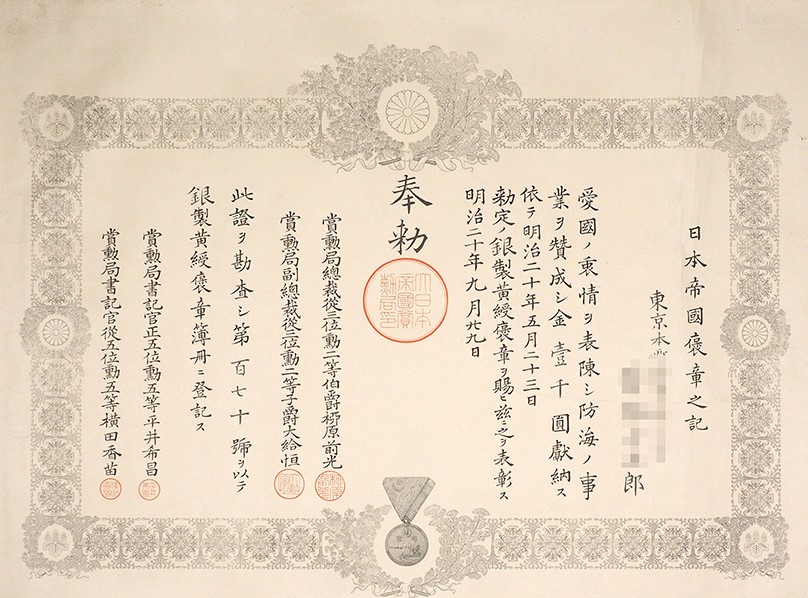 日本帝國褒章之記
東京本
郎
愛國ノ衷情ヲ表陳シ防海ノ事
業ヲ賛成シ金壹千圓獻納ス
依テ明治二十年五月二十三日
勅定ノ銀製黃綬褒章ヲ賜ヒ茲ニ之ヲ表彰ス
明治二十年九月廿九日
奉勅
大日本
帝國賞
勳局印
賞勳局總裁從三位勳二等伯爵柳原前光
賞勳局副總裁從三位勳二等子爵大給恒
此證ヲ勘査シ第百七十號ヲ以テ
銀製黃綬褒章簿册ニ登記ス
賞勳局書記官正五位勳五等平井希昌
賞勳局書記官從五位勳五等橫田香苗